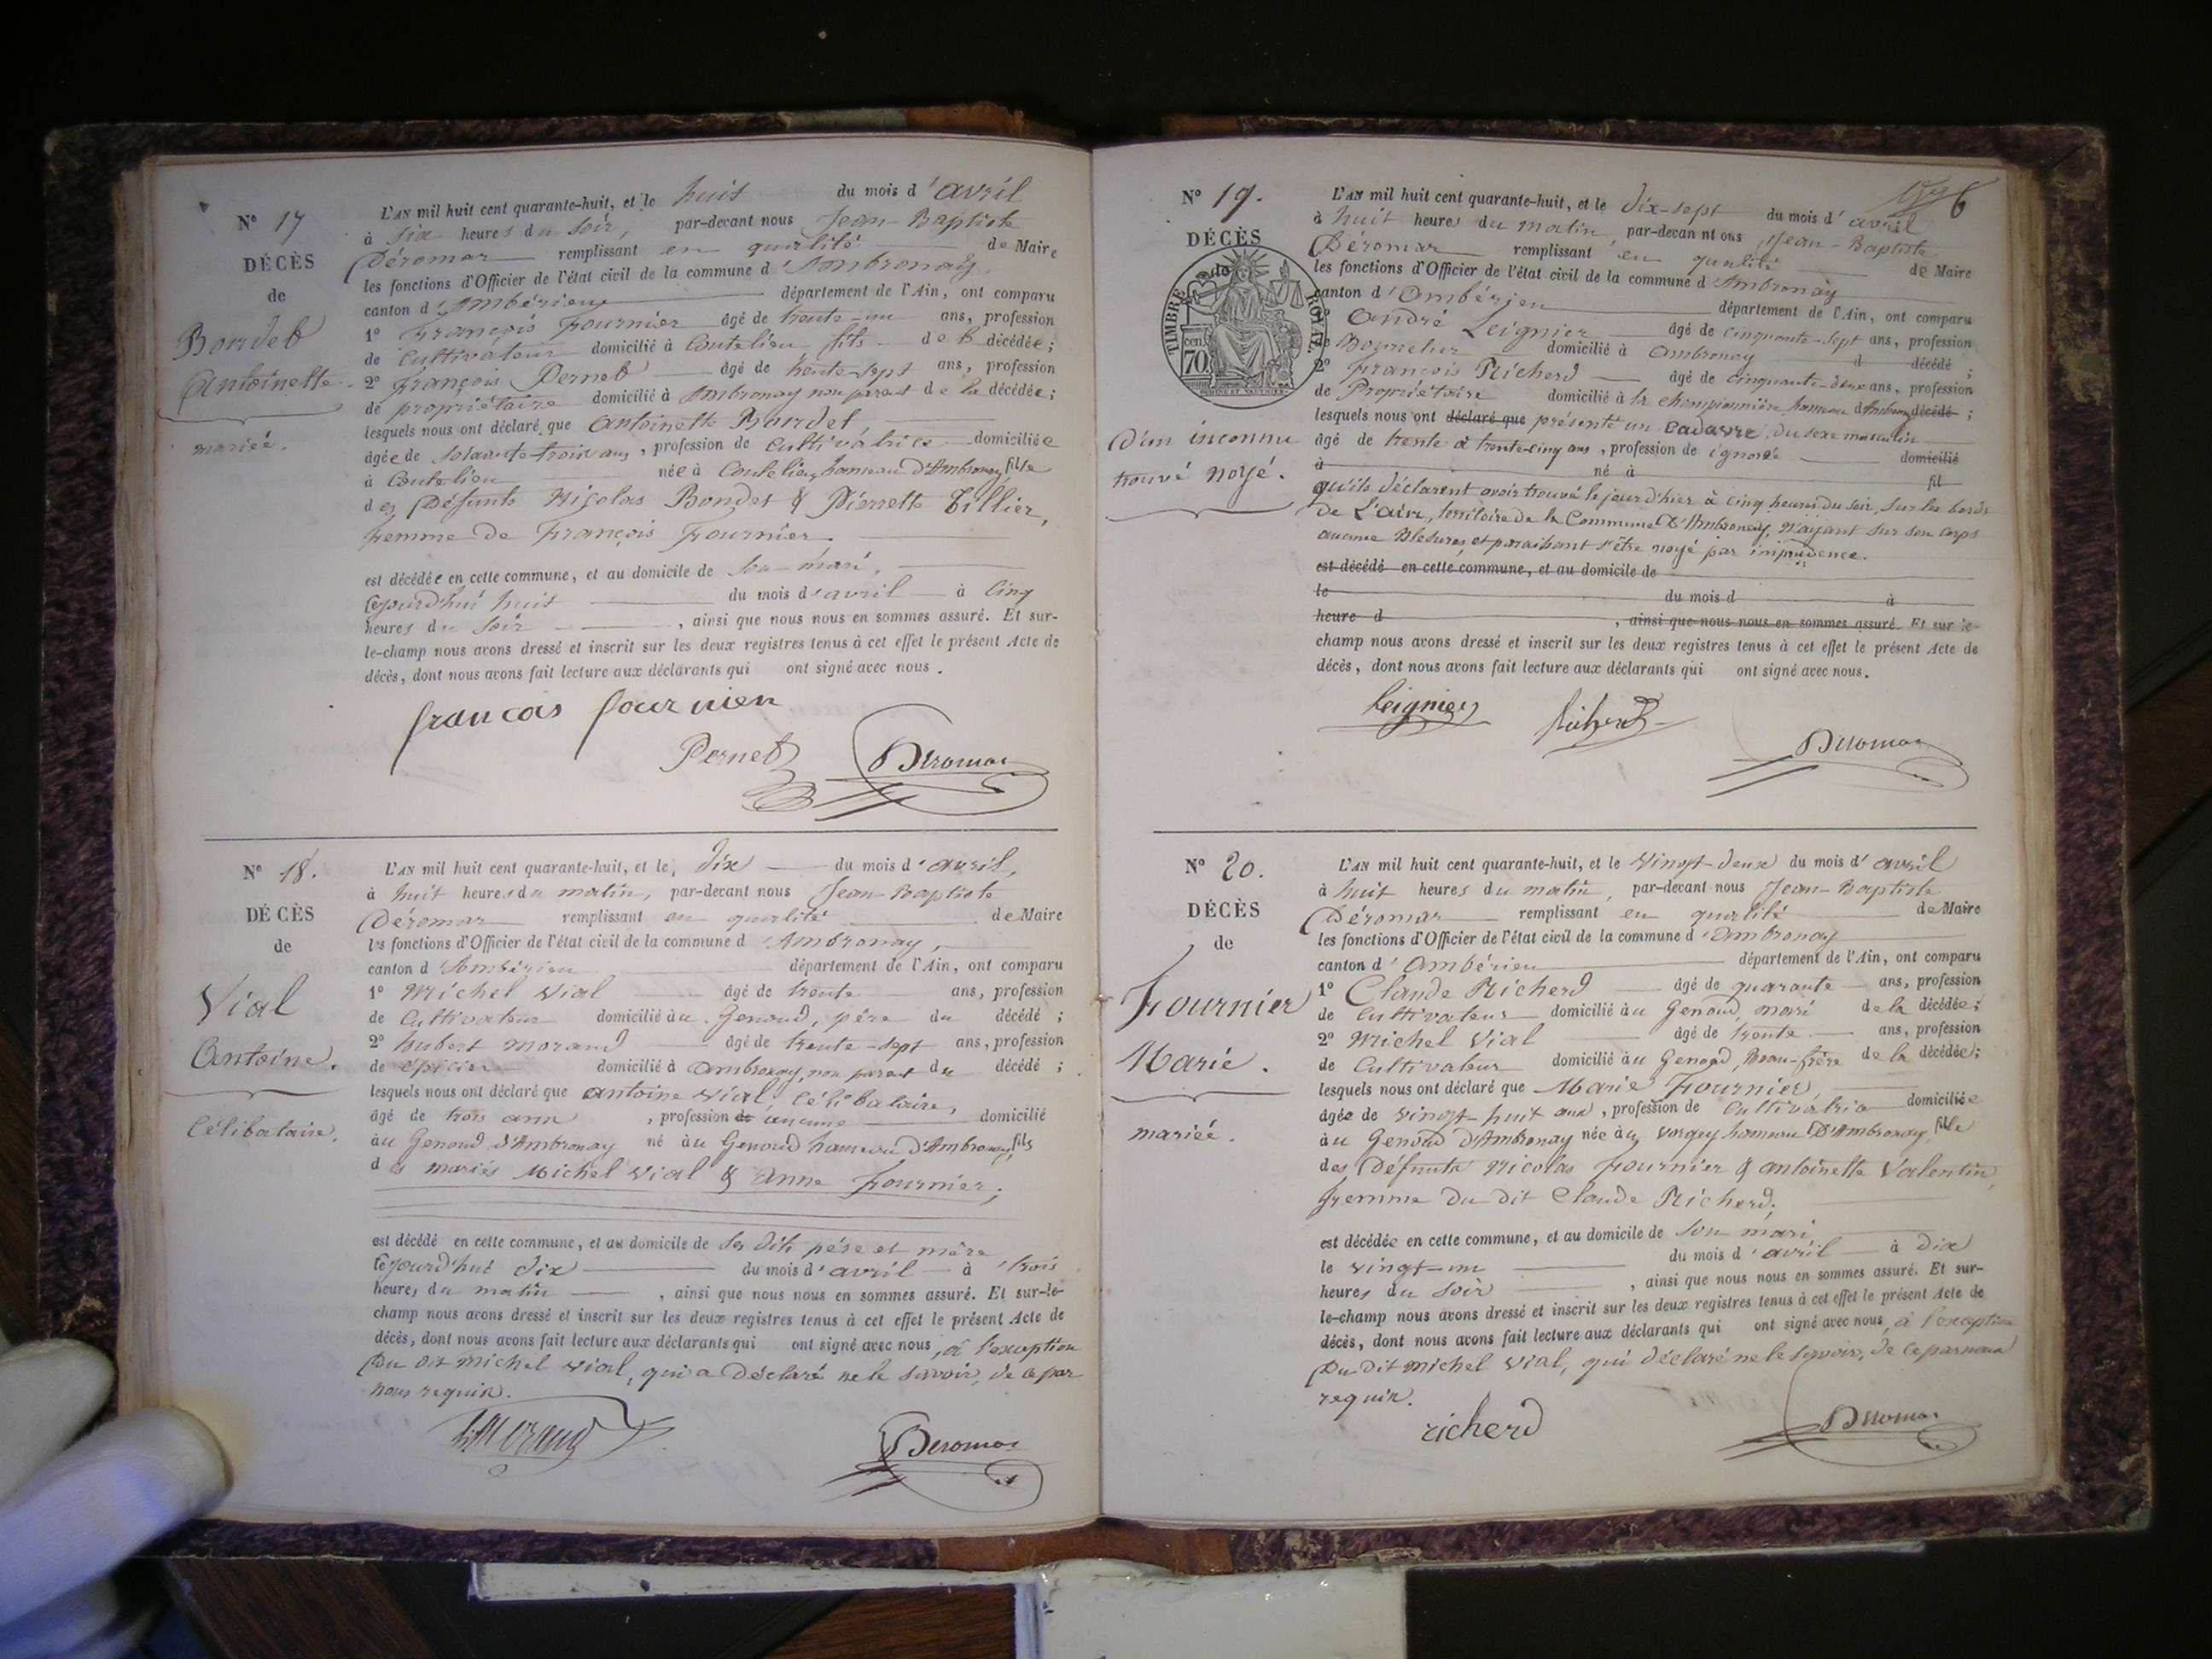 N° 17
DÉCÈS
de
Bondet
Antoinette.
mariée.
L'AN mil huit cent quarante-huit, et le huit du mois d'avril
à Six heures du soir, par-devant nous Jean-Baptiste
Déromas remplissant en qualité de Maire
les fonctions d'Officier de l'état civil de la commune d'Ambronay,
canton d'Ambérieu département de l'Ain, ont comparu
1° François Fournier âgé de trente-un ans, profession
de Cultivateur domicilié à Coutelieu fils de la décédée;
2° François Pernet âgé de trente-sept ans, profession
de propriétaire domicilié à Ambronay non parent de la décédée;
lesquels nous ont déclaré que Antoinette Bondet,
âgée de soixante trois ans, profession de Cultivatrice domiciliée
à Coutelieu née à Coutelieu, hameau d'Ambronay, fille
des Défunts Nicolas Bondet & Pierrette Tillier,
femme de François Fournier.
est décédée en cette commune, et au domicile de son mari,
cejourd'hui huit du mois d'avril à Cinq
heures du soir, ainsi que nous nous en sommes assuré. Et sur-
le-champ nous avons dressé et inscrit sur les deux registres tenus à cet effet le présent Acte de
décès, dont nous avons fait lecture aux déclarants qui ont signé avec nous.
francois fournier
Pernet Deromas
N° 18.
DÉCÈS
de
Vial
Antoine.
Célibataire.
L'AN mil huit cent quarante-huit, et le, Dix du mois d'avril,
à huit heures du matin, par-devant nous Jean-Baptiste
Déromas remplissant en qualité de Maire
les fonctions d'Officier de l'état civil de la commune d'Ambronay,
canton d'Ambérieu département de l'Ain, ont comparu
1° Michel Vial âgé de trente ans, profession
de Cultivateur domicilié au Genoud, père du décédé;
2° hubert Morand âgé de trente-sept ans, profession
de épicier domicilié à Ambronay, non parent du décédé;
lesquels nous ont déclaré que Antoine Vial, Célibataire,
âgé de trois ans, profession de aucune domicilié
au Genoud d'Ambronay né au Genoud hameau d'Ambronay, fils
des mariés Michel Vial & Anne Fournier;
est décédé en cette commune, et au domicile de ses dits père et mère
cejourd'hui dix du mois d'avril à trois
heures du matin, ainsi que nous nous en sommes assuré. Et sur-le-
champ nous avons dressé et inscrit sur les deux registres tenus à cet effet le présent Acte de
décès, dont nous avons fait lecture aux déclarants qui ont signé avec nous, à l'exception
Du dit Michel Vial, qui a déclaré ne le savoir, de ce par
nous requis.
h. Morand Deromas
6
N° 19.
DÉCÈS
de
TIMBRE ROYAL
70 cen
D'un inconnu
trouvé noyé.
L'AN mil huit cent quarante-huit, et le Dix-sept du mois d'avril
à huit heures du matin, par-devan nt ous Jean-Baptiste
Déromas remplissant en qualité de Maire
les fonctions d'Officier de l'état civil de la commune d'Ambronay
canton d'Ambérieu département de l'Ain, ont comparu
André Leignier âgé de cinquante-sept ans, profession
Bourrelier domicilié à Ambronay d décédé;
2° François Richerd âgé de cinquante-deux ans, profession
de Propriétaire domicilié à la championnière hameau d'Ambronay décédé;
lesquels nous ont déclaré que présenté un Cadavre, du sexe masculin
âgé de trente à trente-cinq ans, profession de ignorée domicilié
à né à fil
qu'ils déclarent avoir trouvé le jour d'hier à cinq heures du soir, sur les bords
de L'ain, territoire de la Commune d'Ambronay, n'ayant sur son corps
aucune Blessures, et paraissant s'être noyé par imprudence.
est décédé en cette commune, et au domicile de
le du mois d à
heure d, ainsi que nous nous en sommes assuré. Et sur le-
champ nous avons dressé et inscrit sur les deux registres tenus à cet effet le présent Acte de
décès, dont nous avons fait lecture aux déclarants qui ont signé avec nous.
Leignier Richerd Deromas
N° 20.
DÉCÈS
de
Fournier
Marie.
mariée.
L'AN mil huit cent quarante-huit, et le vingt-deux du mois d'avril
à huit heures du matin, par-devant nous Jean-Baptiste
Déromas remplissant en qualité de Maire
les fonctions d'Officier de l'état civil de la commune d'Ambronay
canton d'Ambérieu département de l'Ain, ont comparu
1° Claude Richerd âgé de quarante ans, profession
de Cultivateur domicilié au Genoud, mari de la décédée;
2° Michel Vial âgé de trente ans, profession
de Cultivateur domicilié au Genoud, Beau-frère de la décédée;
lesquels nous ont déclaré que Marie Fournier,
âgée de vingt-huit ans, profession de Cultivatrice domiciliée
au Genoud d'Ambronay née au Vorgey hameau d'Ambronay, fille
des Défunts Nicolas Fournier & Antoinette Valentin,
femme du dit Claude Richerd;
est décédée en cette commune, et au domicile de son mari,
le vingt-un du mois d'avril à Dix
heures du soir, ainsi que nous nous en sommes assuré. Et sur-
le-champ nous avons dressé et inscrit sur les deux registres tenus à cet effet le présent Acte de
décès, dont nous avons fait lecture aux déclarants qui ont signé avec nous, à l'exception
Du dit Michel Vial, qui déclaré ne le savoir, de ce par nous
requis.
richerd Deromas